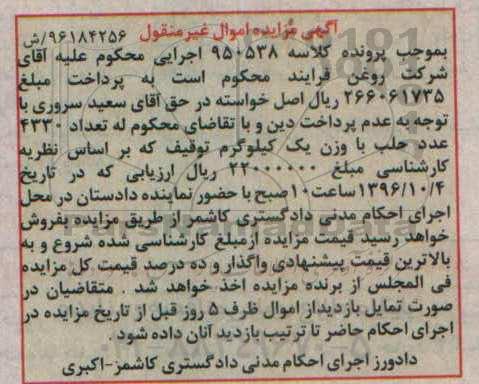 آگهی مزایده اموال غیرمنقول ۹۶۱۸۴۲۵۶/ش
بموجب پرونده کلاسه ۹۵۰۵۳۸ اجرایی محکوم علیه آقای
شرکت روغن فرایند محکوم است به پرداخت مبلغ
۲۶۶۰۶۱۷۳۵ ریال اصل خواسته در حق آقای سعید سروری با
توجه به عدم پرداخت دین و با تقاضای محکوم له تعداد ۴۳۳۰
عدد حلب با وزن یک کیلوگرم توقیف که بر اساس نظریه
کارشناسی مبلغ ۲۲۰۰۰۰۰۰۰ ریال ارزیابی که در تاریخ
۱۳۹۶/۱۰/۴ ساعت ۱۰ صبح با حضور نماینده دادستان در محل
اجرای احکام مدنی دادگستری کاشمر از طریق مزایده بفروش
خواهد رسید قیمت مزایده از مبلغ کارشناسی شده شروع و به
بالاترین قیمت پیشنهادی واگذار و ده درصد قیمت کل مزایده
فی المجلس از برنده مزایده اخذ خواهد شد . متقاضیان در
صورت تمایل بازدید از اموال ظرف ۵ روز قبل از تاریخ مزایده در
اجرای احکام حاضر تا ترتیب بازدید آنان داده شود .
دادورز اجرای احکام مدنی دادگستری کاشمز-اکبری